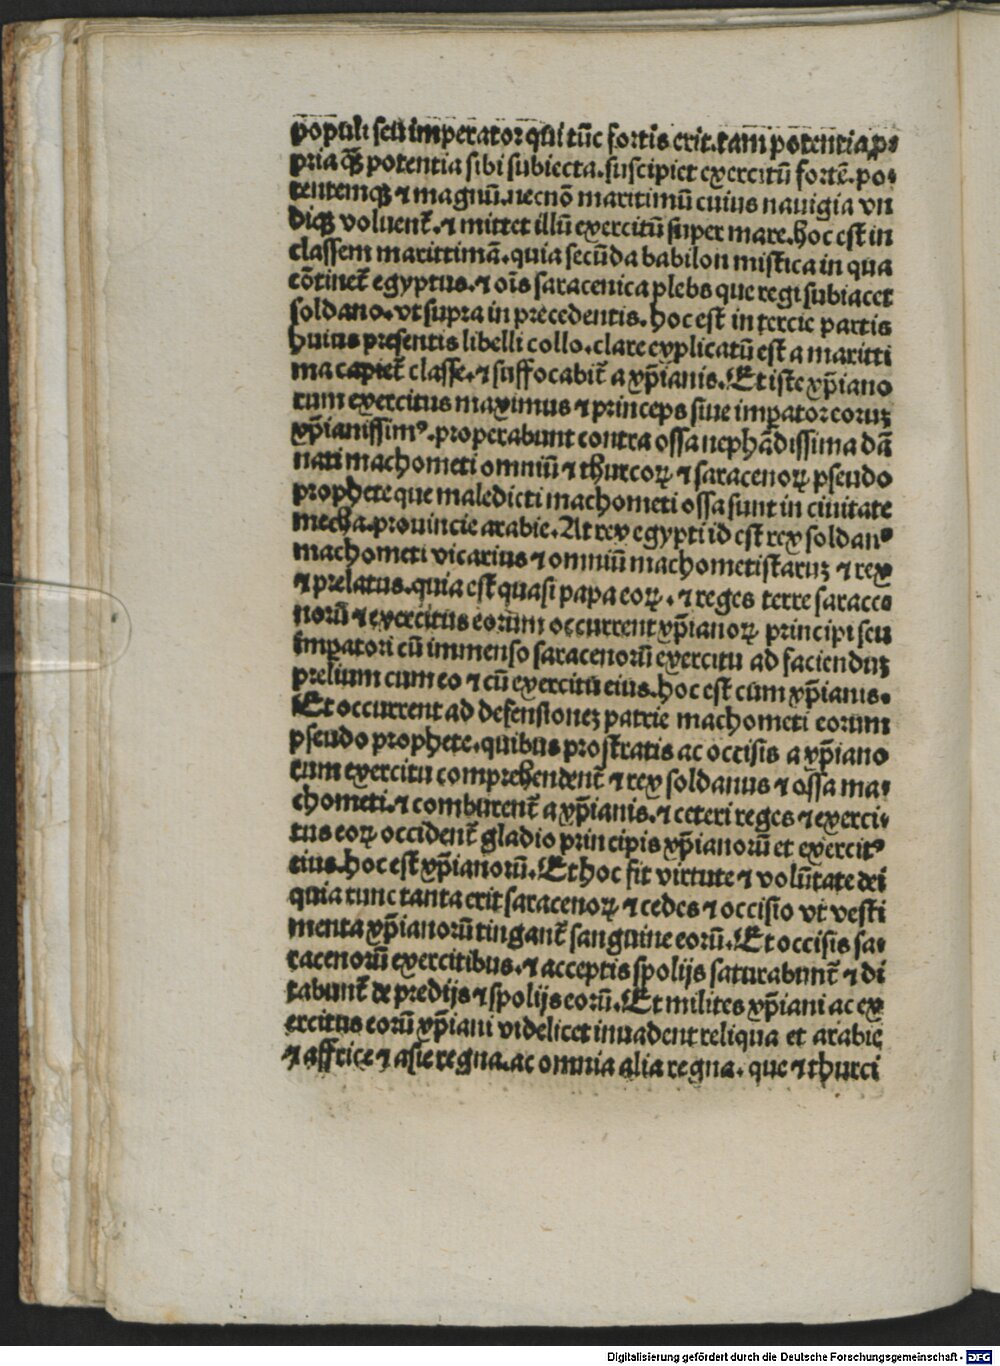 populi seu imperator qui tūc fortis erit. tam potentia ꝓ⸗
pria qꝫ potentia sibi subiecta. suscipiet exercitū fortē. po⸗
tentemqꝫ ⁊ magnū. necnō maritimū cuius nauigia vn
diqꝫ voluent᷑. ⁊ mittet illū exercitū super mare. hoc est in
classem marittimā. quia secūda babilon mistica in qua
cōtinet᷑ egyptus. ⁊ oīs saracenica plebs que regi subiacet
soldano. vt supra in precedentis. hoc est in tercie partis
huius presentis libelli collo. clare explicatū est a maritti
ma capiet᷑ classe. ⁊ suffocabit᷑ a xp̄ianis. Et iste xp̄iano
rum exercitus maximus ⁊ princeps siue imperator eoruꝫ
xp̄ianissimꝰ. properabunt contra ossa nephādissima dā
nati machometi omniū ⁊ thurcoꝝ ⁊ saracenoꝝ pseudo
prophete que maledicti machometi ossa sunt in ciuitate
mecha. prouincie arabie. At rex egypti id est rex soldanꝰ
machometi vicarius ⁊ omniū machometistaruꝫ ⁊ rex
⁊ prelatus. quia est quasi papa eoꝝ. ⁊ reges terre sarace
norū ⁊ exercitus eorum occurrent xp̄ianoꝝ principi seu
imperatori cū immenso saracenorū exercitu ad faciendūꝫ
prelium cum eo ⁊ cū exercitu eius. hoc est cum xp̄ianis.
Et occurrent ad defensioneꝫ patrie machometi eorum
pseudo prophete. quibus prostratis ac occisis a xp̄iano
rum exercitu comprehendent᷑ ⁊ rex soldanus ⁊ ossa ma⸗
chometi. ⁊ comburent᷑ a xp̄ianis. ⁊ ceteri reges ⁊ exerci⸗
tus eoꝝ occident᷑ gladio principis xp̄ianorū et exercitꝰ
eius. hoc est xp̄ianorū. Et hoc fit virtute ⁊ volūtate dei
quia tunc tanta erit saracenoꝝ ⁊ cedes ⁊ occisio vt vesti
menta xp̄ianorū tingant᷑ sanguine eorū. Et occisis sa⸗
racenorū exercitibus. ⁊ acceptis spolijs saturabunt᷑ ⁊ di
tabunt᷑ de predijs ⁊ spolijs eorū. Et milites xp̄iani ac ex
ercitus eorū xp̄iani videlicet inuadent reliqua et arabie
⁊ affrice ⁊ asie regna. ac omnia alia regna. que ⁊ thurci
Digitalisierung gefördert durch die Deutsche Forschungsgemeinschaft - DFG